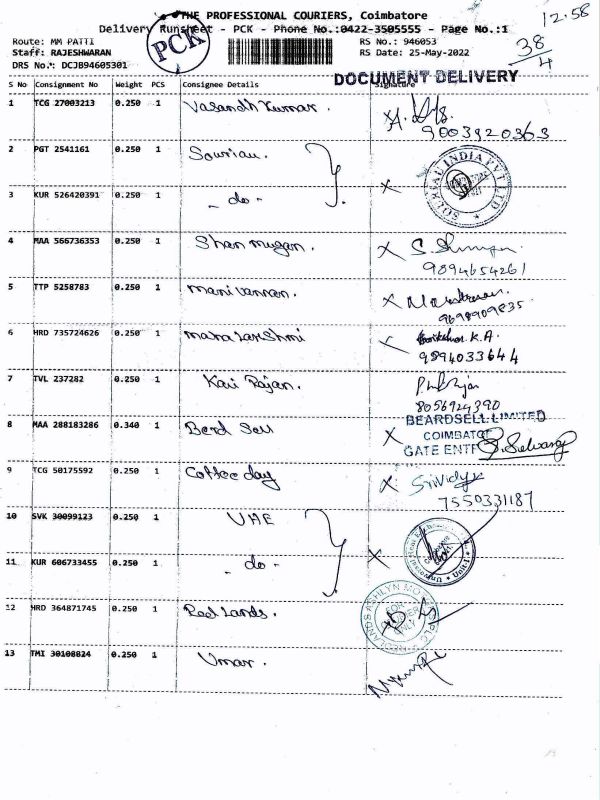 THE PROFESSIONAL COURIERS, Coimbatore
12.58
Delivery Runsheet - PCK - Phone No.:0422-3505555 - Page No.:1
PCK
38/4
Route: MM PATTI
RS No.: 946053
Staff: RAJESHWARAN
RS Date: 25-May-2022
DRS No.: DCJB94605301
DOCUMENT DELIVERY
S No Consignment No Weight PCS Consignee Details Signature
1 TCG 27003213 0.250 1 Vasandh Kumar.
9003920363
2 PGT 2541161 0.250 1 Souriau.
SOURIAU INDIA PVT LTD
3 KUR 526420391 0.250 1 - do -
4 MAA 566736353 0.250 1 Shanmugan.
9894654261
5 TTP 5258783 0.250 1 manivannan.
9698909835
6 HRD 735724626 0.250 1 mahalakshmi K.A.
9894033644
7 TVL 237282 0.250 1 Kavi Rajan.
8056924390
BEARDSELL LIMITED
8 MAA 288183286 0.340 1 Berd Sell
COIMBATO
GATE ENT
9 TCG 50175592 0.250 1 Coffee day Srividya
7550331187
10 SVK 30099123 0.250 1 UAE
11 KUR 606733455 0.250 1 - do -
12 HRD 364871745 0.250 1 Redlands.
13 TMI 30108824 0.250 1 Umar.